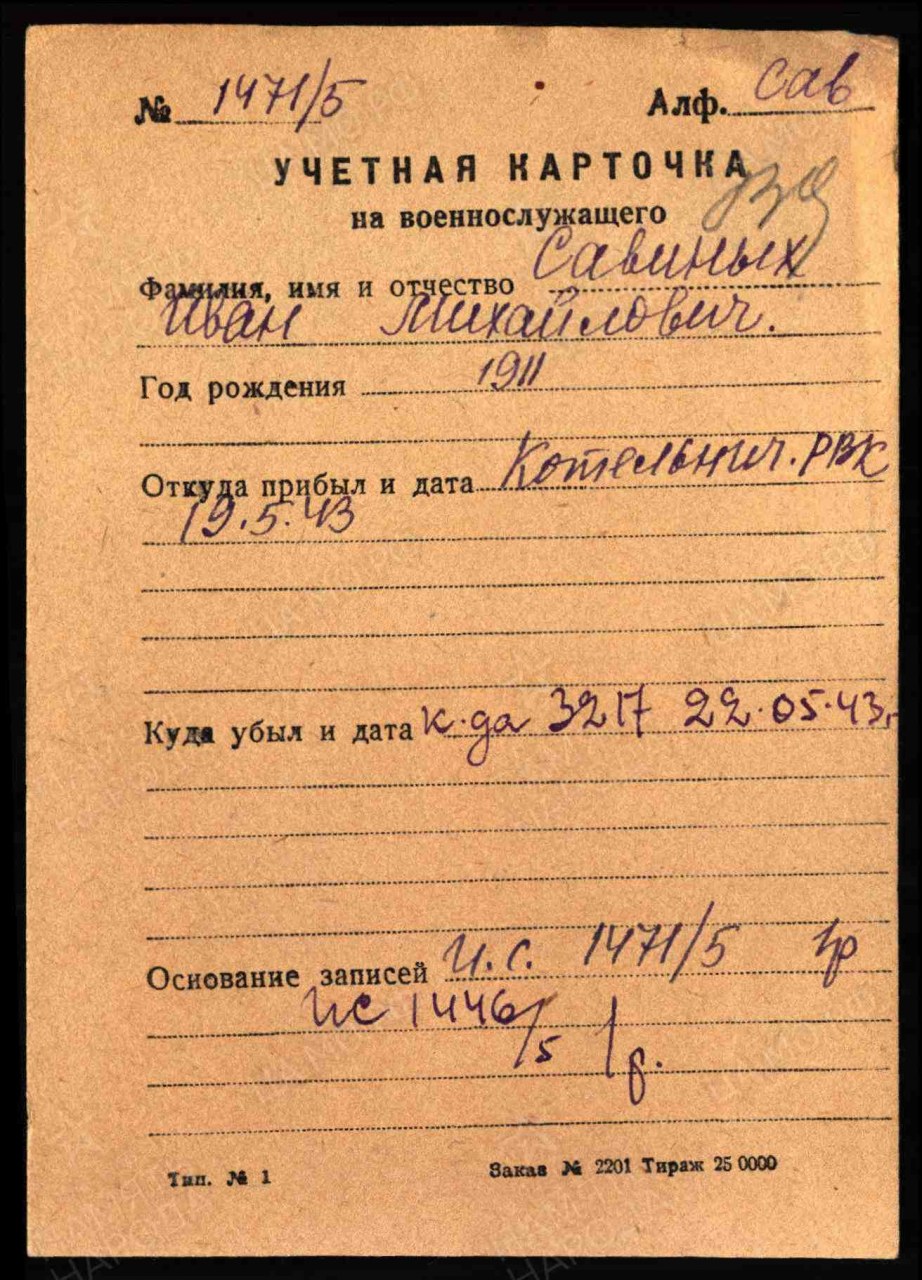 № 1471/5 Алф. Сав
УЧЕТНАЯ КАРТОЧКА
на военнослужащего
Фамилия, имя и отчество Савиных
Иван Михайлович.
Год рождения 1911
Откуда прибыл и дата Котельнич. РВК
19.5.43
Куда убыл и дата к-да 3217 22.05.43
Основание записей И.С. 1471/5 1р
ИС 1446/5 1р.
Тип. № 1 Заказ № 2201 Тираж 25 0000